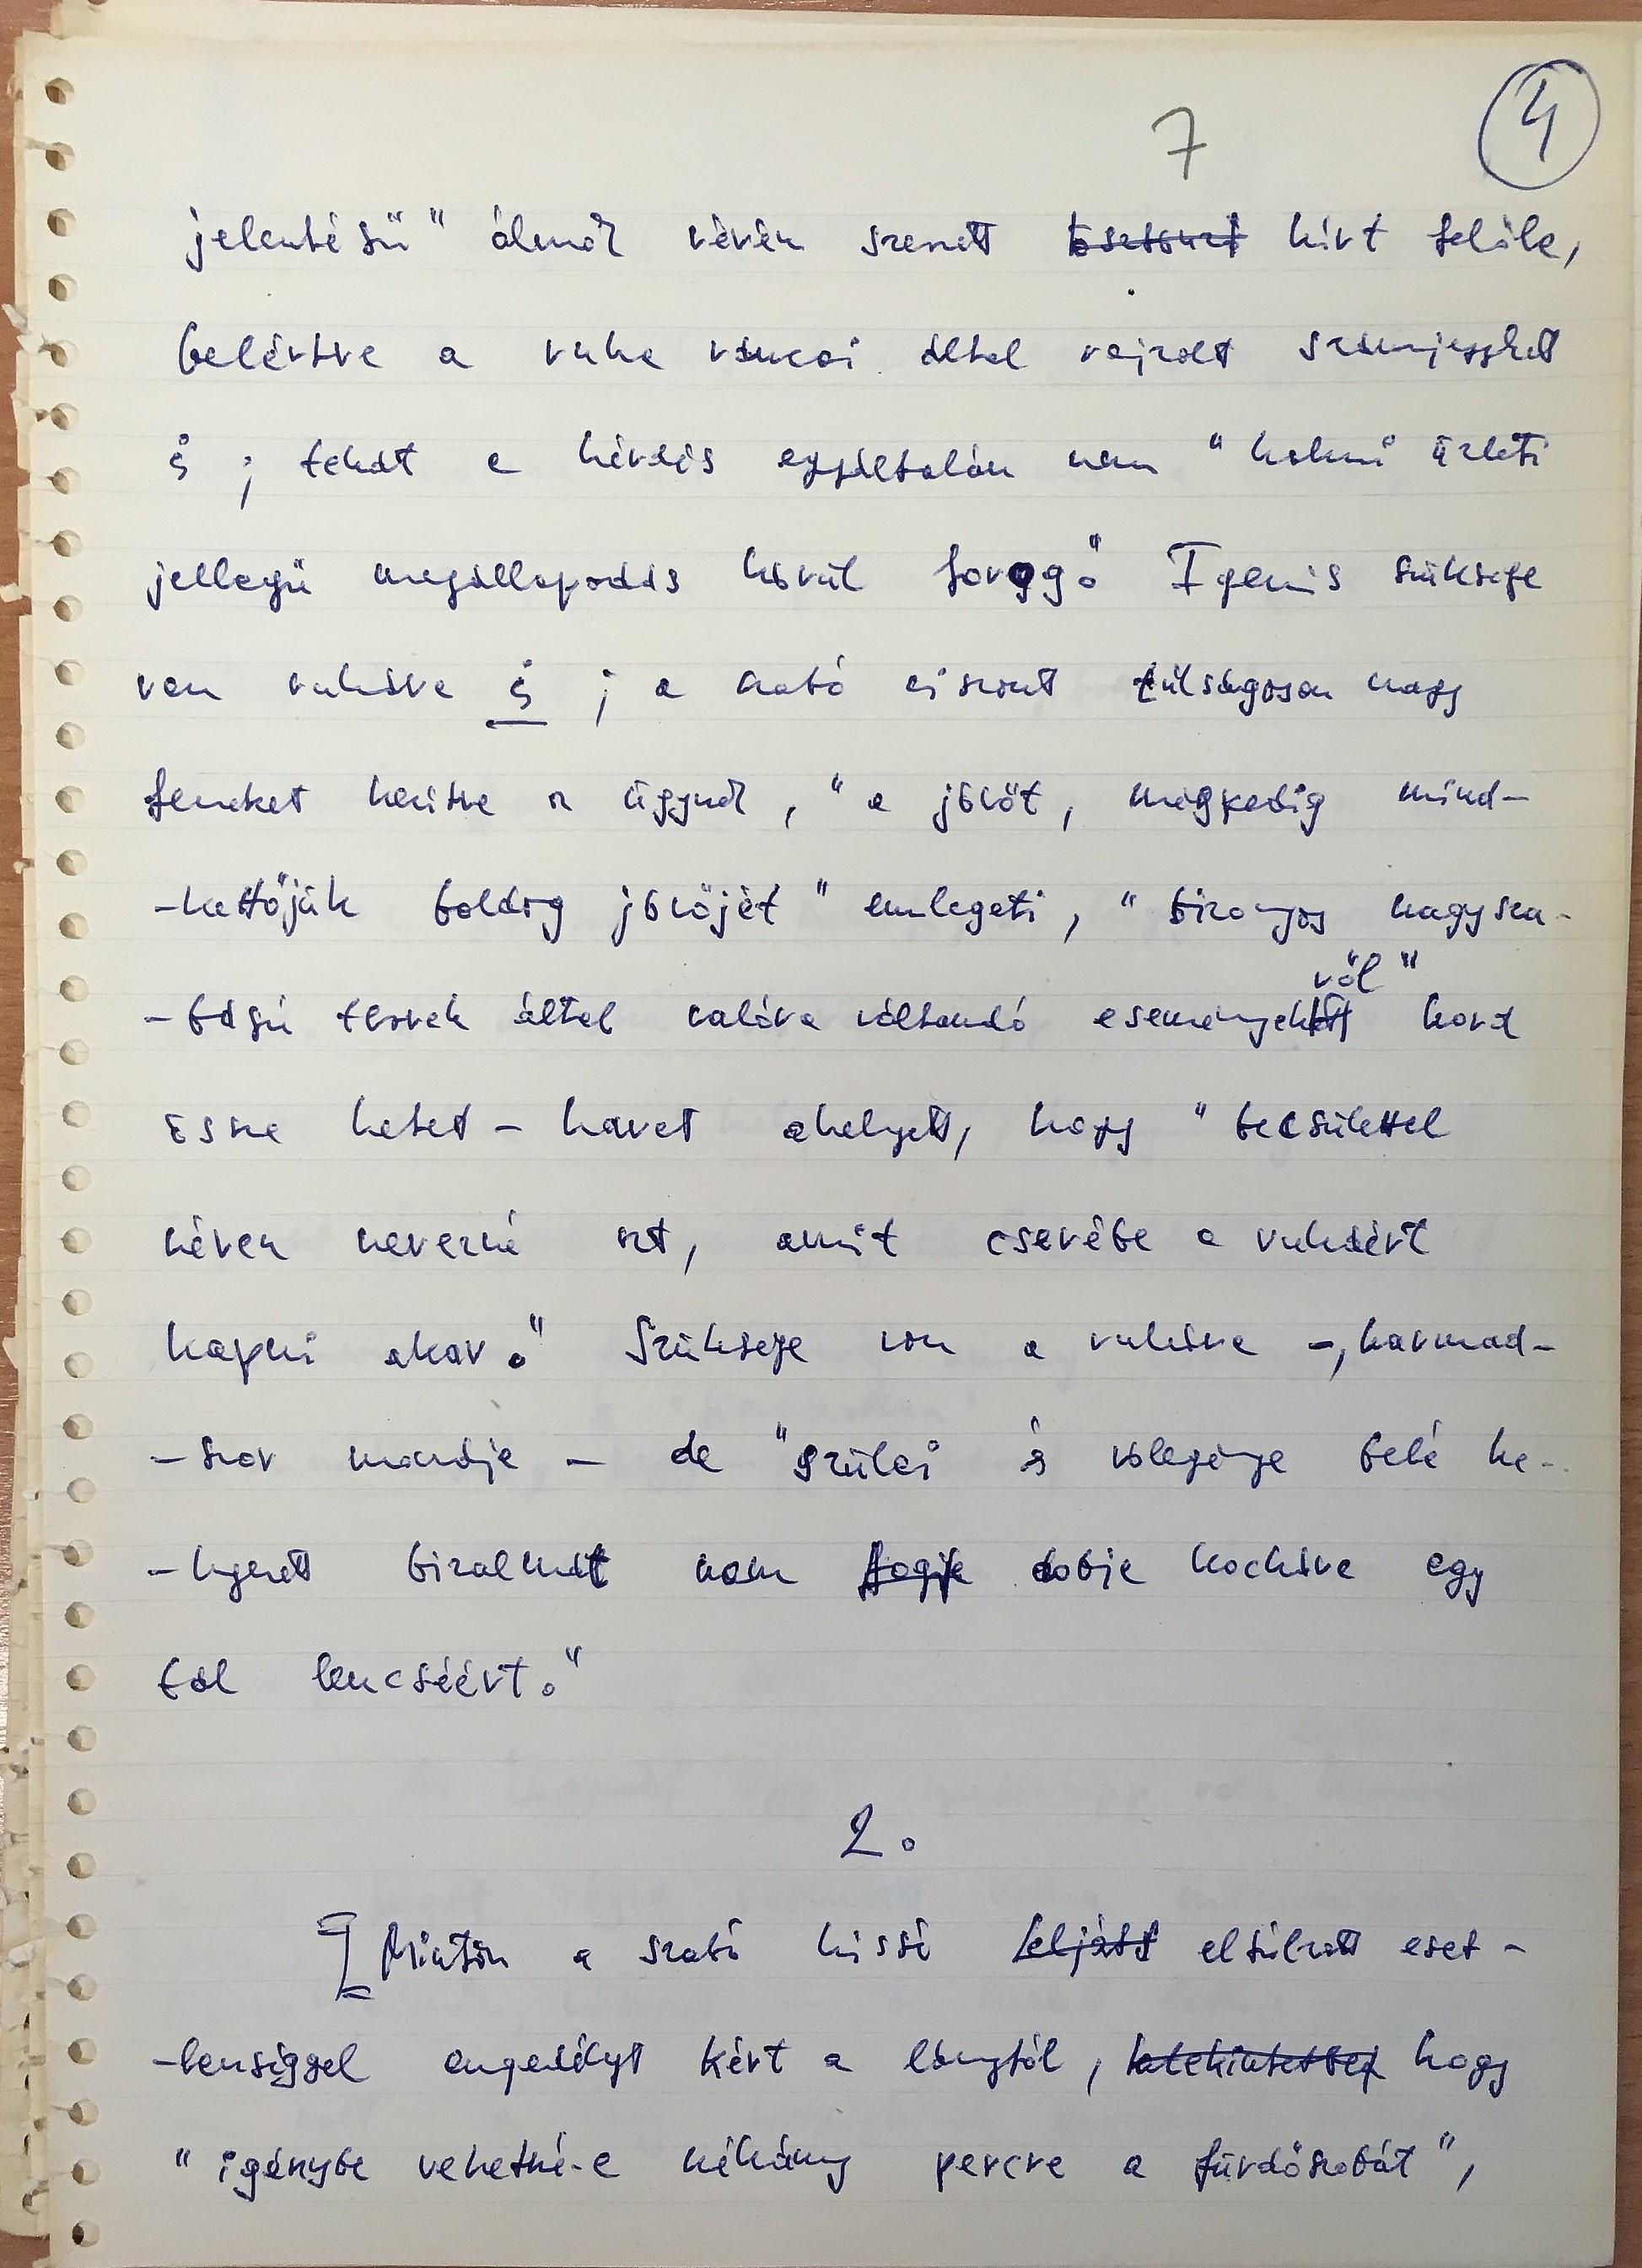 7 4
jelentésű" álmok révén szerzett hírt felőle,
beleértve a ruha ráncai által rajzolt számjegyeket
is ; tehát a kérdés egyáltalán nem "holmi üzleti
jellegű megállapodás körül forog." Igenis szüksége
van ruhára is ; a szabó viszont túlságosan nagy
feneket kerítve az ügynek, "a jövőt, mégpedig mind-
-kettőjük boldog jövőjét" emlegeti, "bizonyos nagysza-
-bású tervek által valóra váltandó eseményekről" hord
össze hetet-havat ahelyett, hogy "becsülettel
néven nevezné azt, amit cserébe a ruháért
kapni akar." Szüksége van a ruhára -, harmad-
-szor mondja - de "szülei és vőlegénye belé he-
-lyezett bizalmát nem dobja kockára egy
tál lencséért."
2.
Miután a szabó kissé eltúlzott eset-
-lenséggel engedélyt kért a lánytól, hogy
"igénybe vehetné-e néhány percre a fürdőszobát",